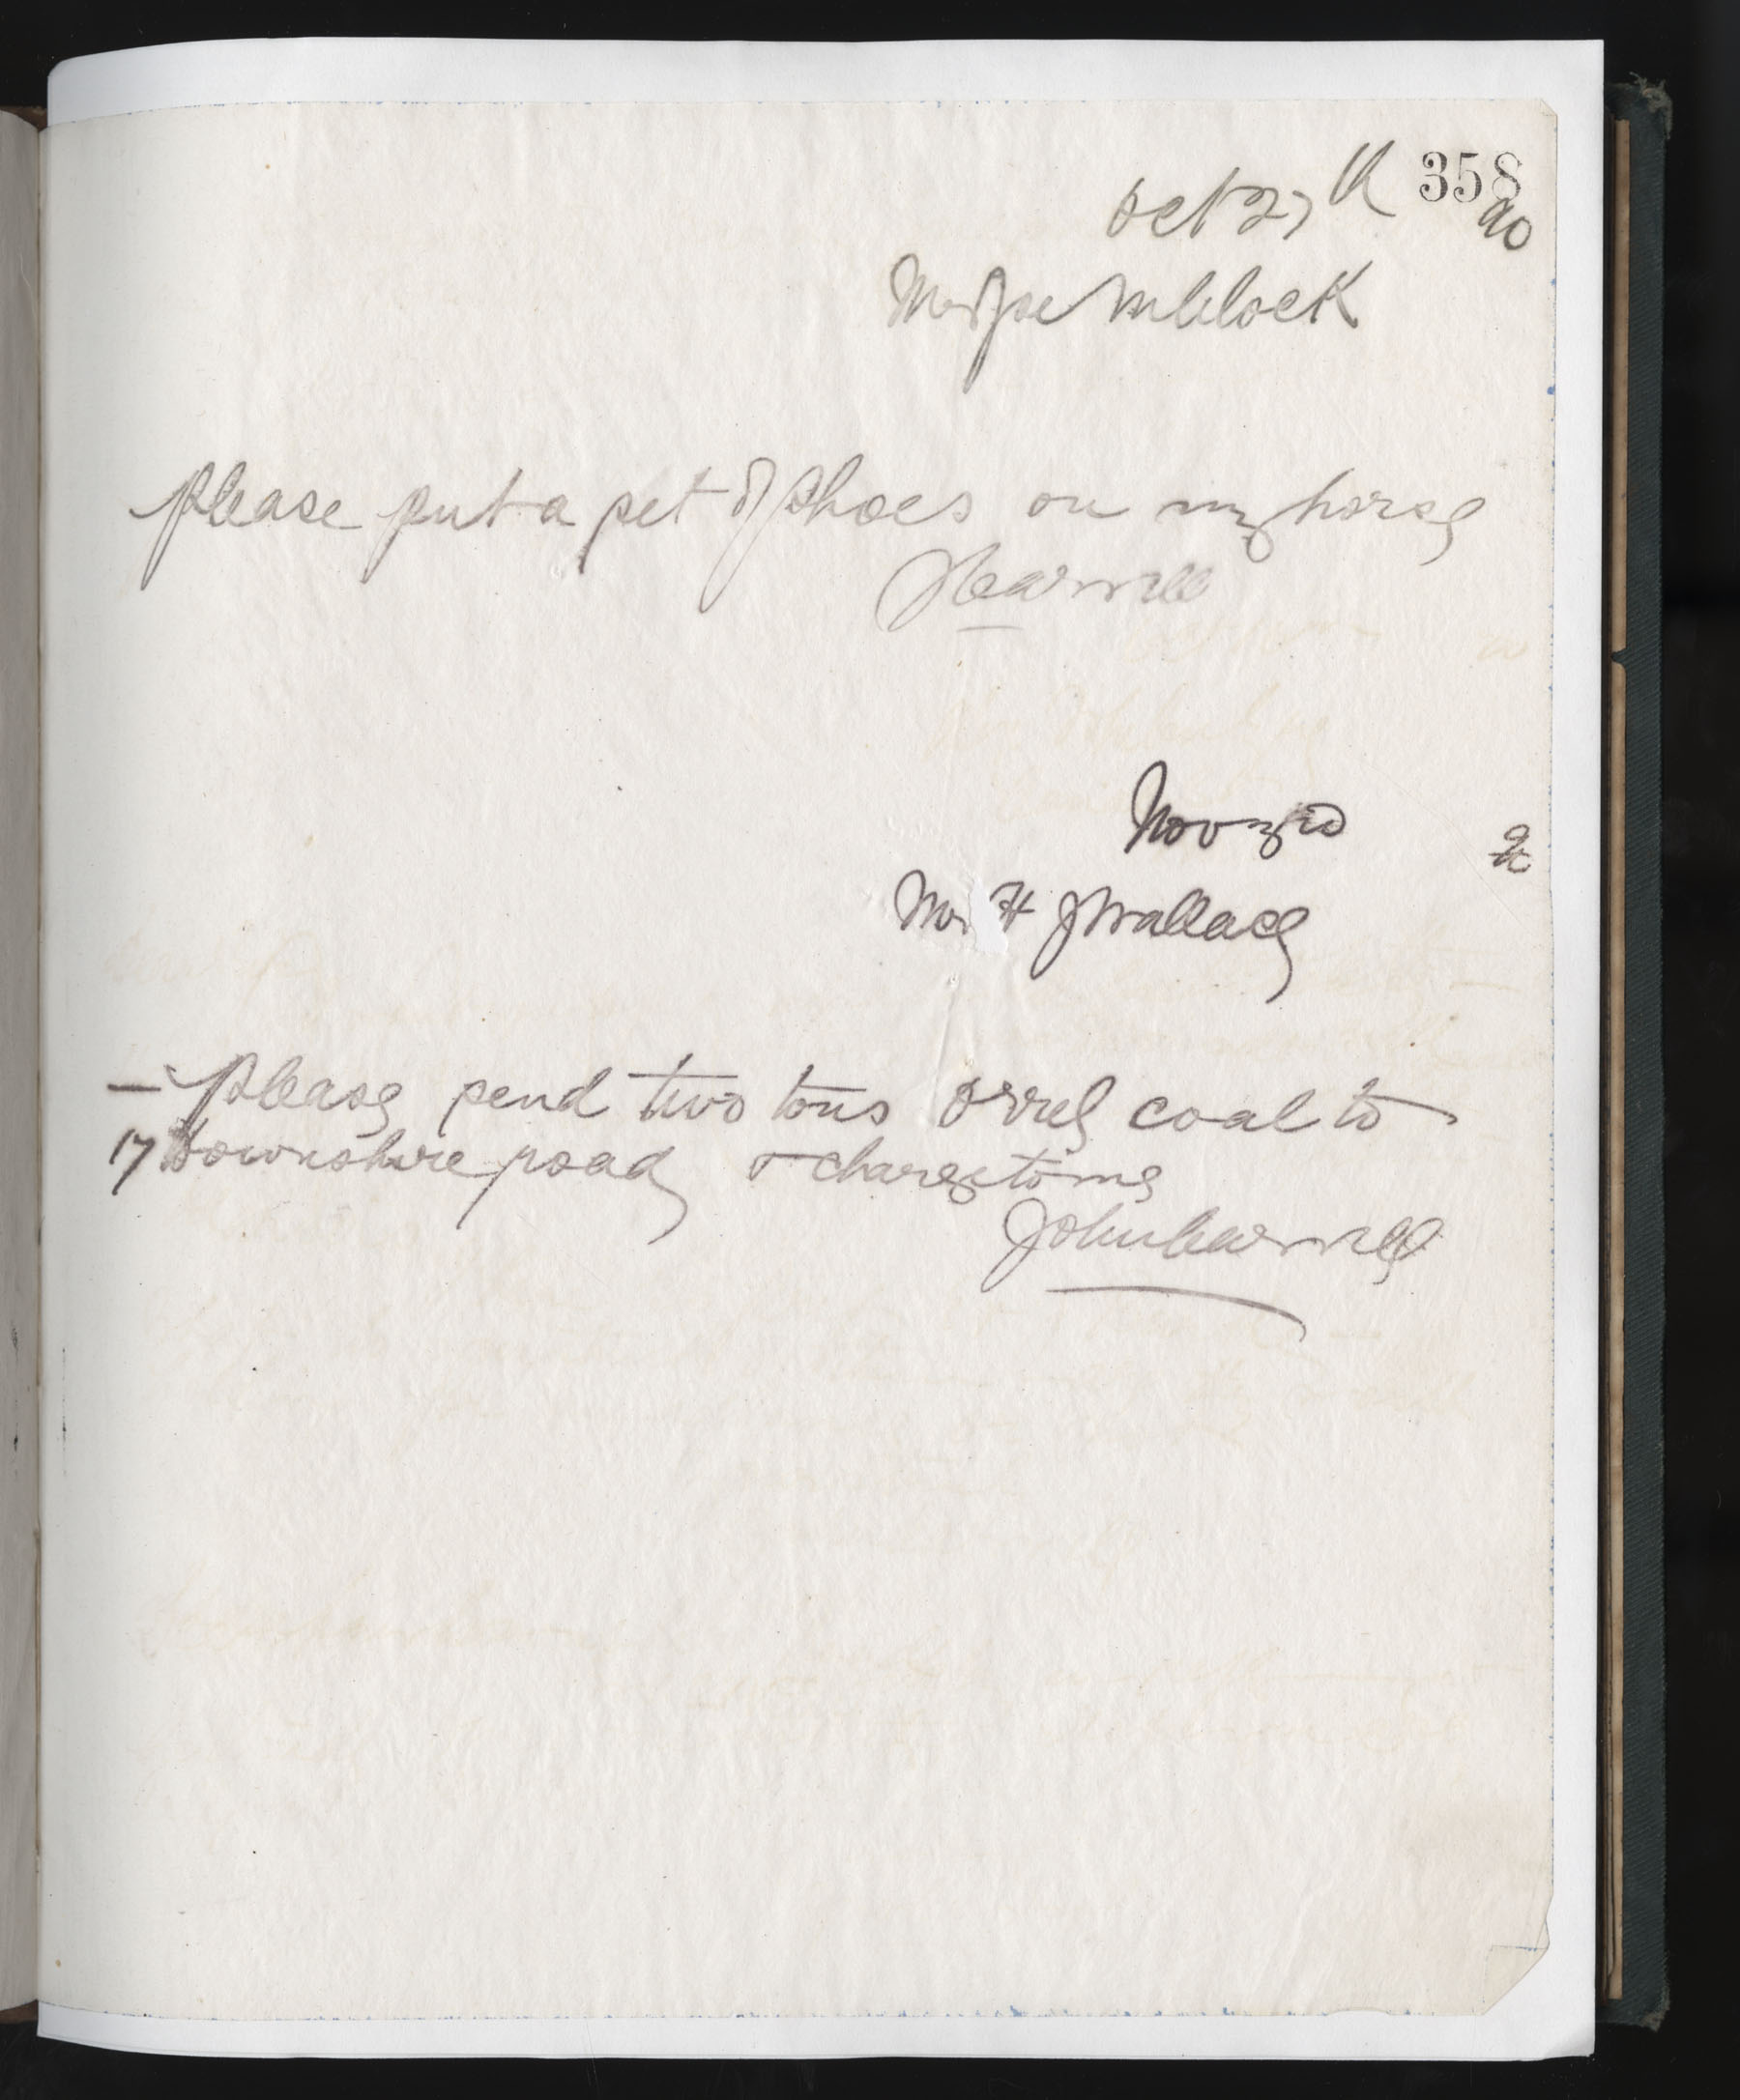 358
Oct 27th 90
Mr Joe McClock
please put a set of shoes on my horse
J Carvill
Nov 3rd 90
Mr H J Wallace
— Please send two tons Orrel coal to
17 Downshire road & charge to me
John Carvill